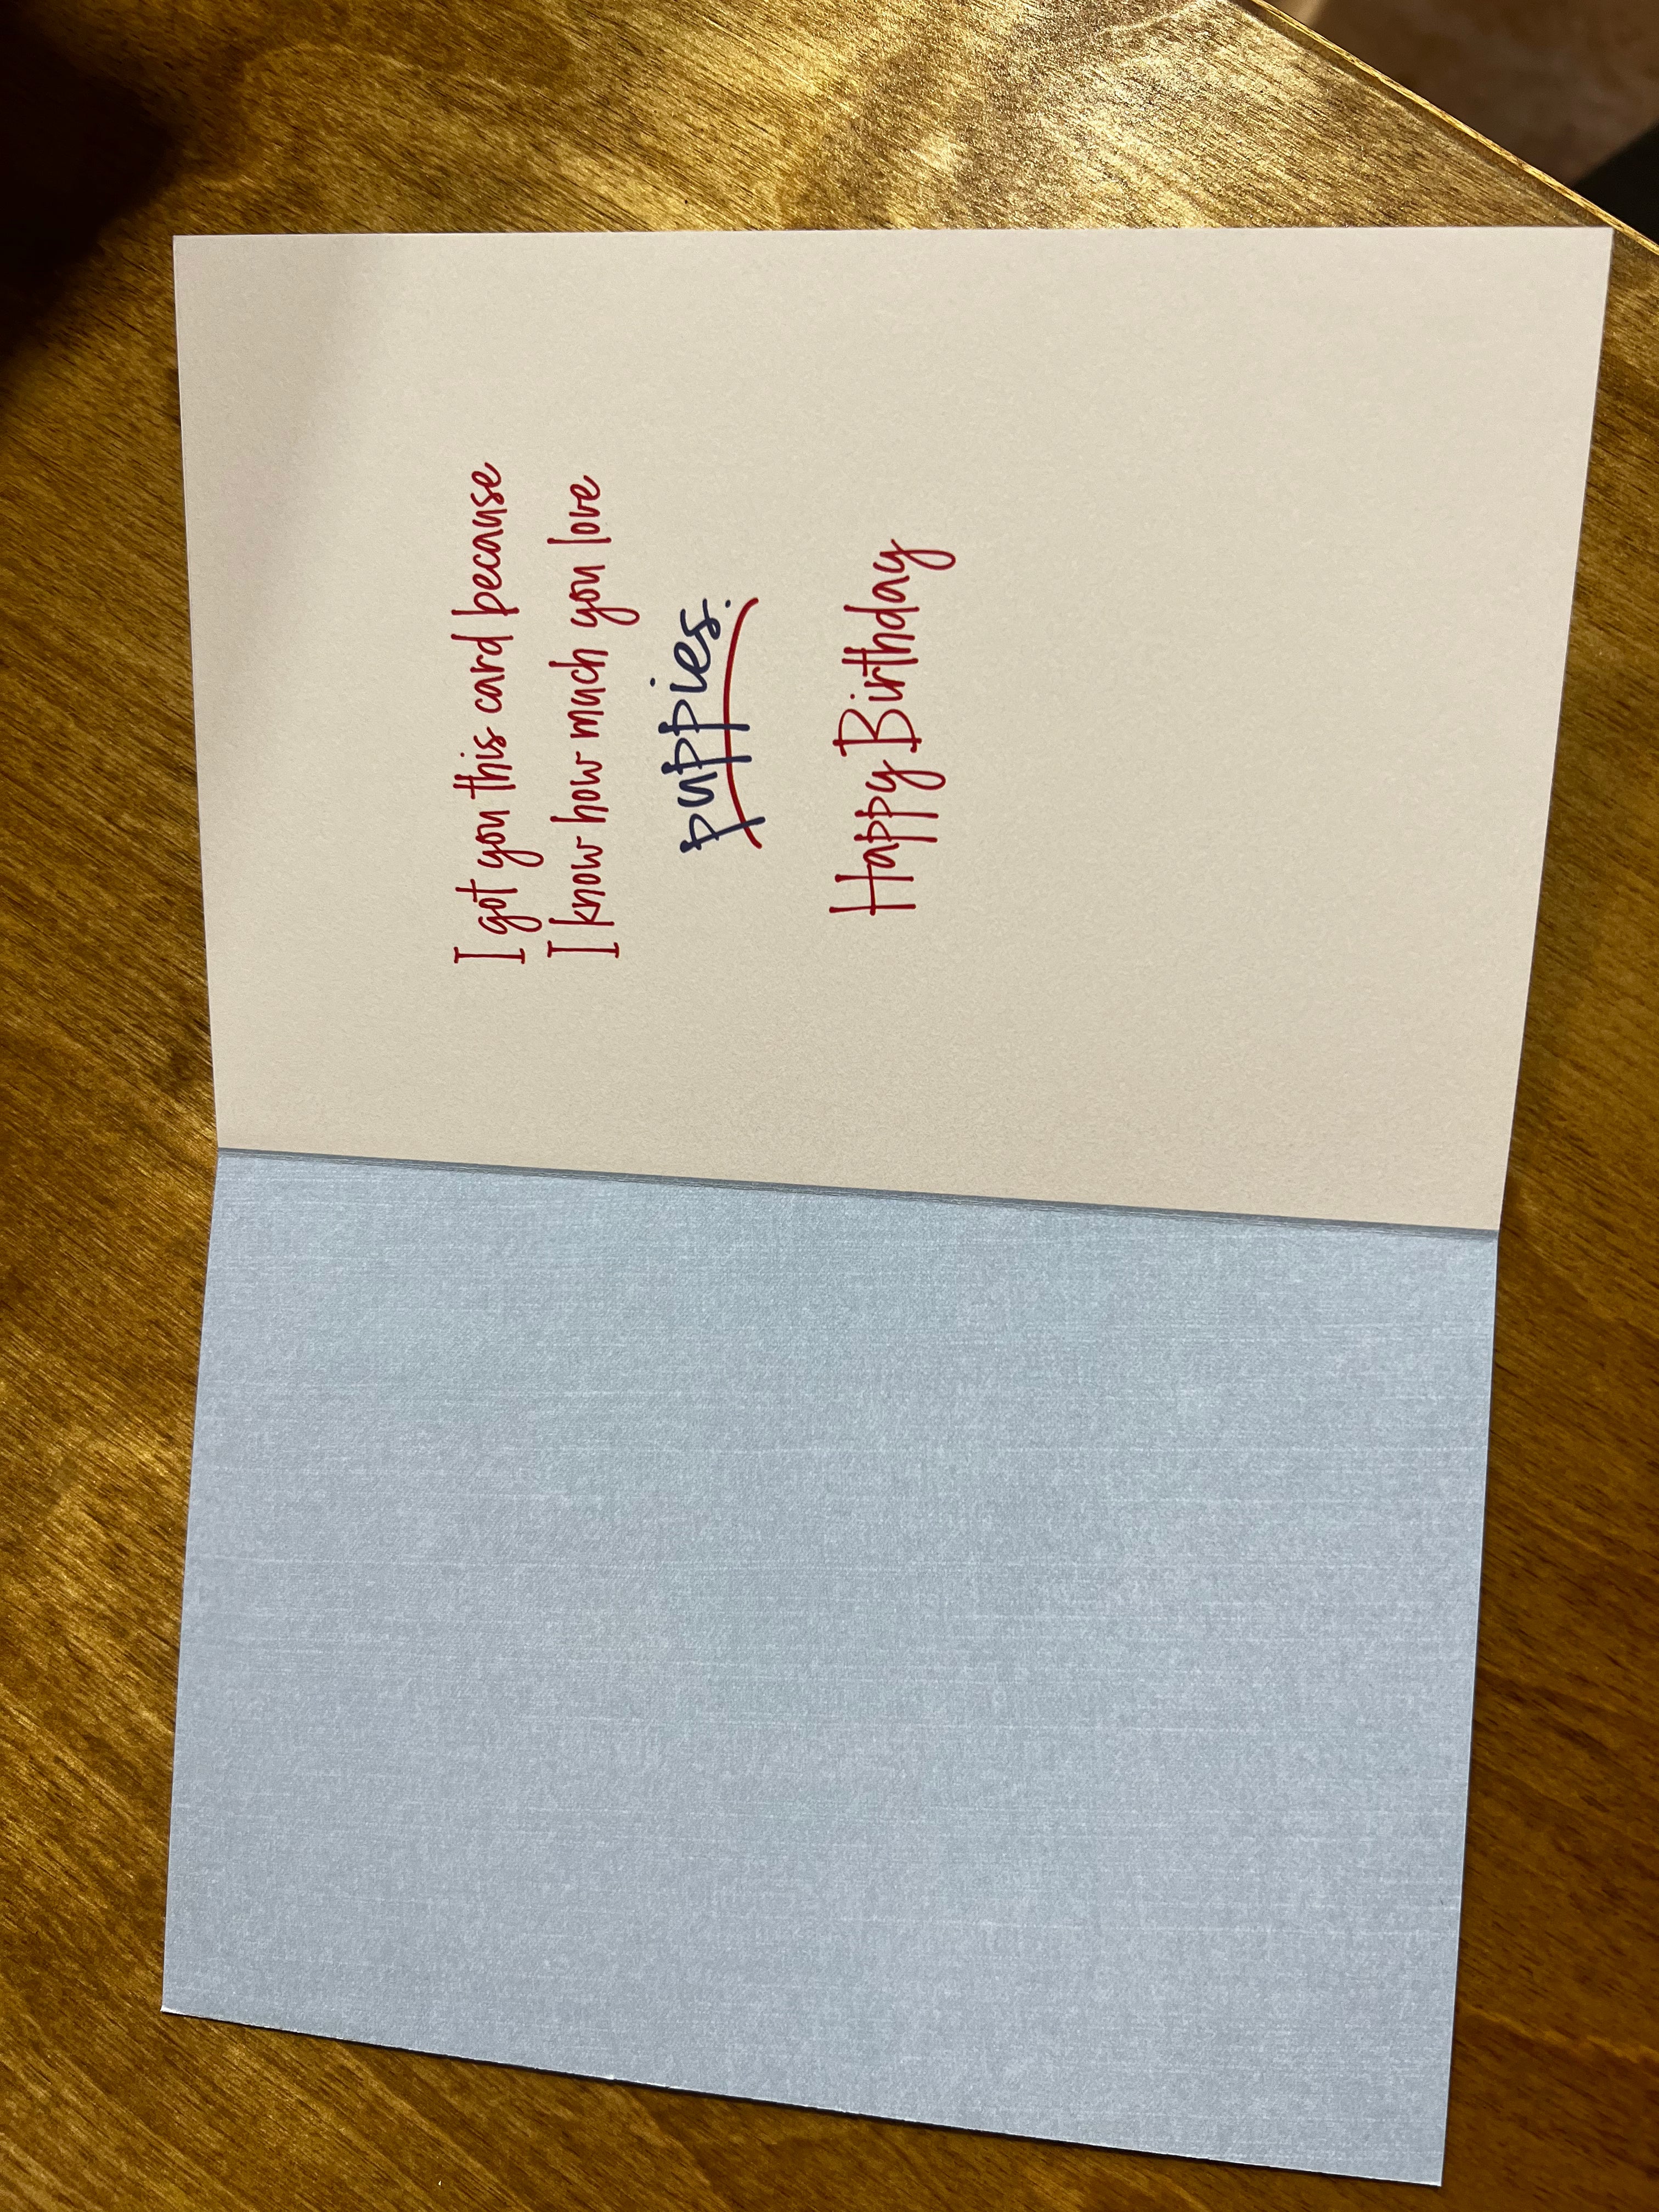 I got you this card because
I know how much you love
puppies.
Happy Birthday